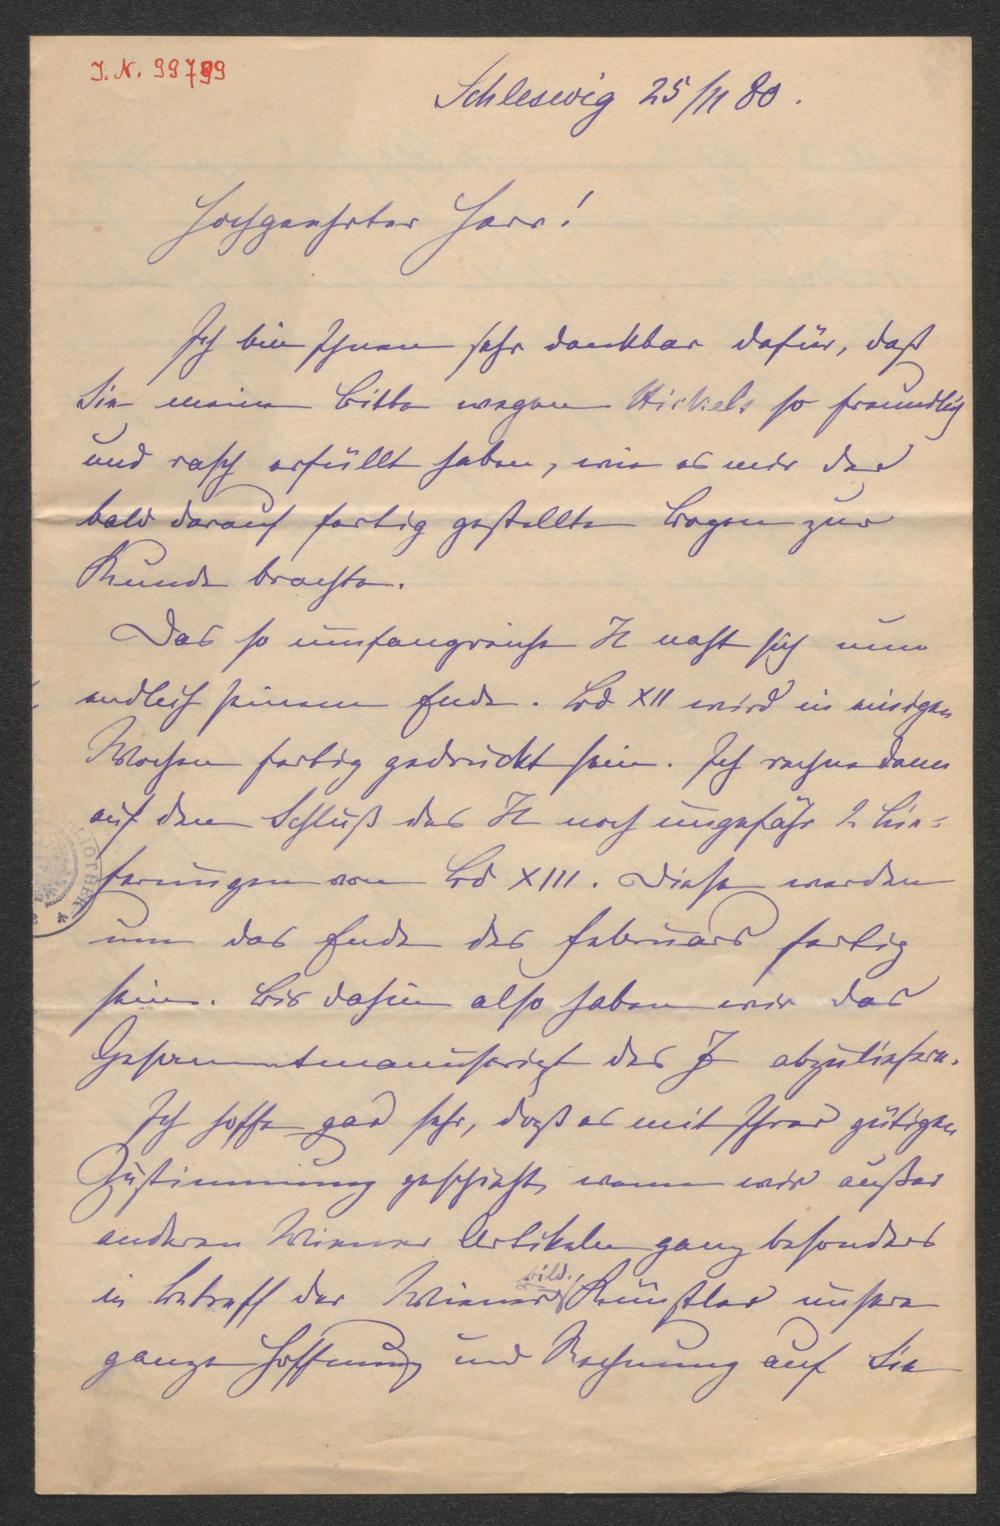 J. N. 99799
Schleswig 25/11 80.
Hochgeehrter Herr!
Ich bin Ihnen sehr dankbar dafür, daß
Sie meine Bitte wegen Hickels so freundlich
und rasch erfüllt haben, wie es mir der
bald darauf fertig gestellte Bogen zur
Kunde brachte.
Das so umfangreiche H naht sich nun
endlich seinem Ende. Bd XII wird in einigen
Wochen fertig gedruckt sein. Ich rechne dann
auf den Schluß des H noch ungefähr 2 Lie-
ferungen von Bd XIII. Diese werden
um das Ende des Februars fertig
sein. Bis dahin also haben wir das
Gesammtmanuscript des J abzuliefern.
Ich hoffe gar sehr, daß es mit Ihrer gütigen
Zustimmung geschieht, wenn wir außer
anderen Wiener Artikeln ganz besonders
in Betreff der Wiener bild. Künstler unsere
ganze Hoffnung und Rechnung auf Sie